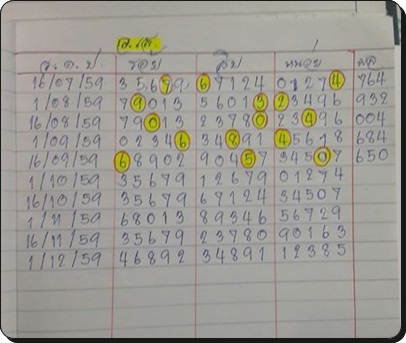 อ.เต้
ว.ด.ป. ร้อย สิบ หน่วย ผล
16/07/59 35679 67124 01274 764
1/08/59 79013 56013 23496 932
16/08/59 79013 23780 23496 004
1/09/59 02346 34891 45618 684
16/09/59 68902 90457 34507 650
1/10/59 35679 12679 01274
16/10/59 35679 67124 34507
1/11/59 68013 89346 56729
16/11/59 35679 23780 90163
1/12/59 46892 34891 12385